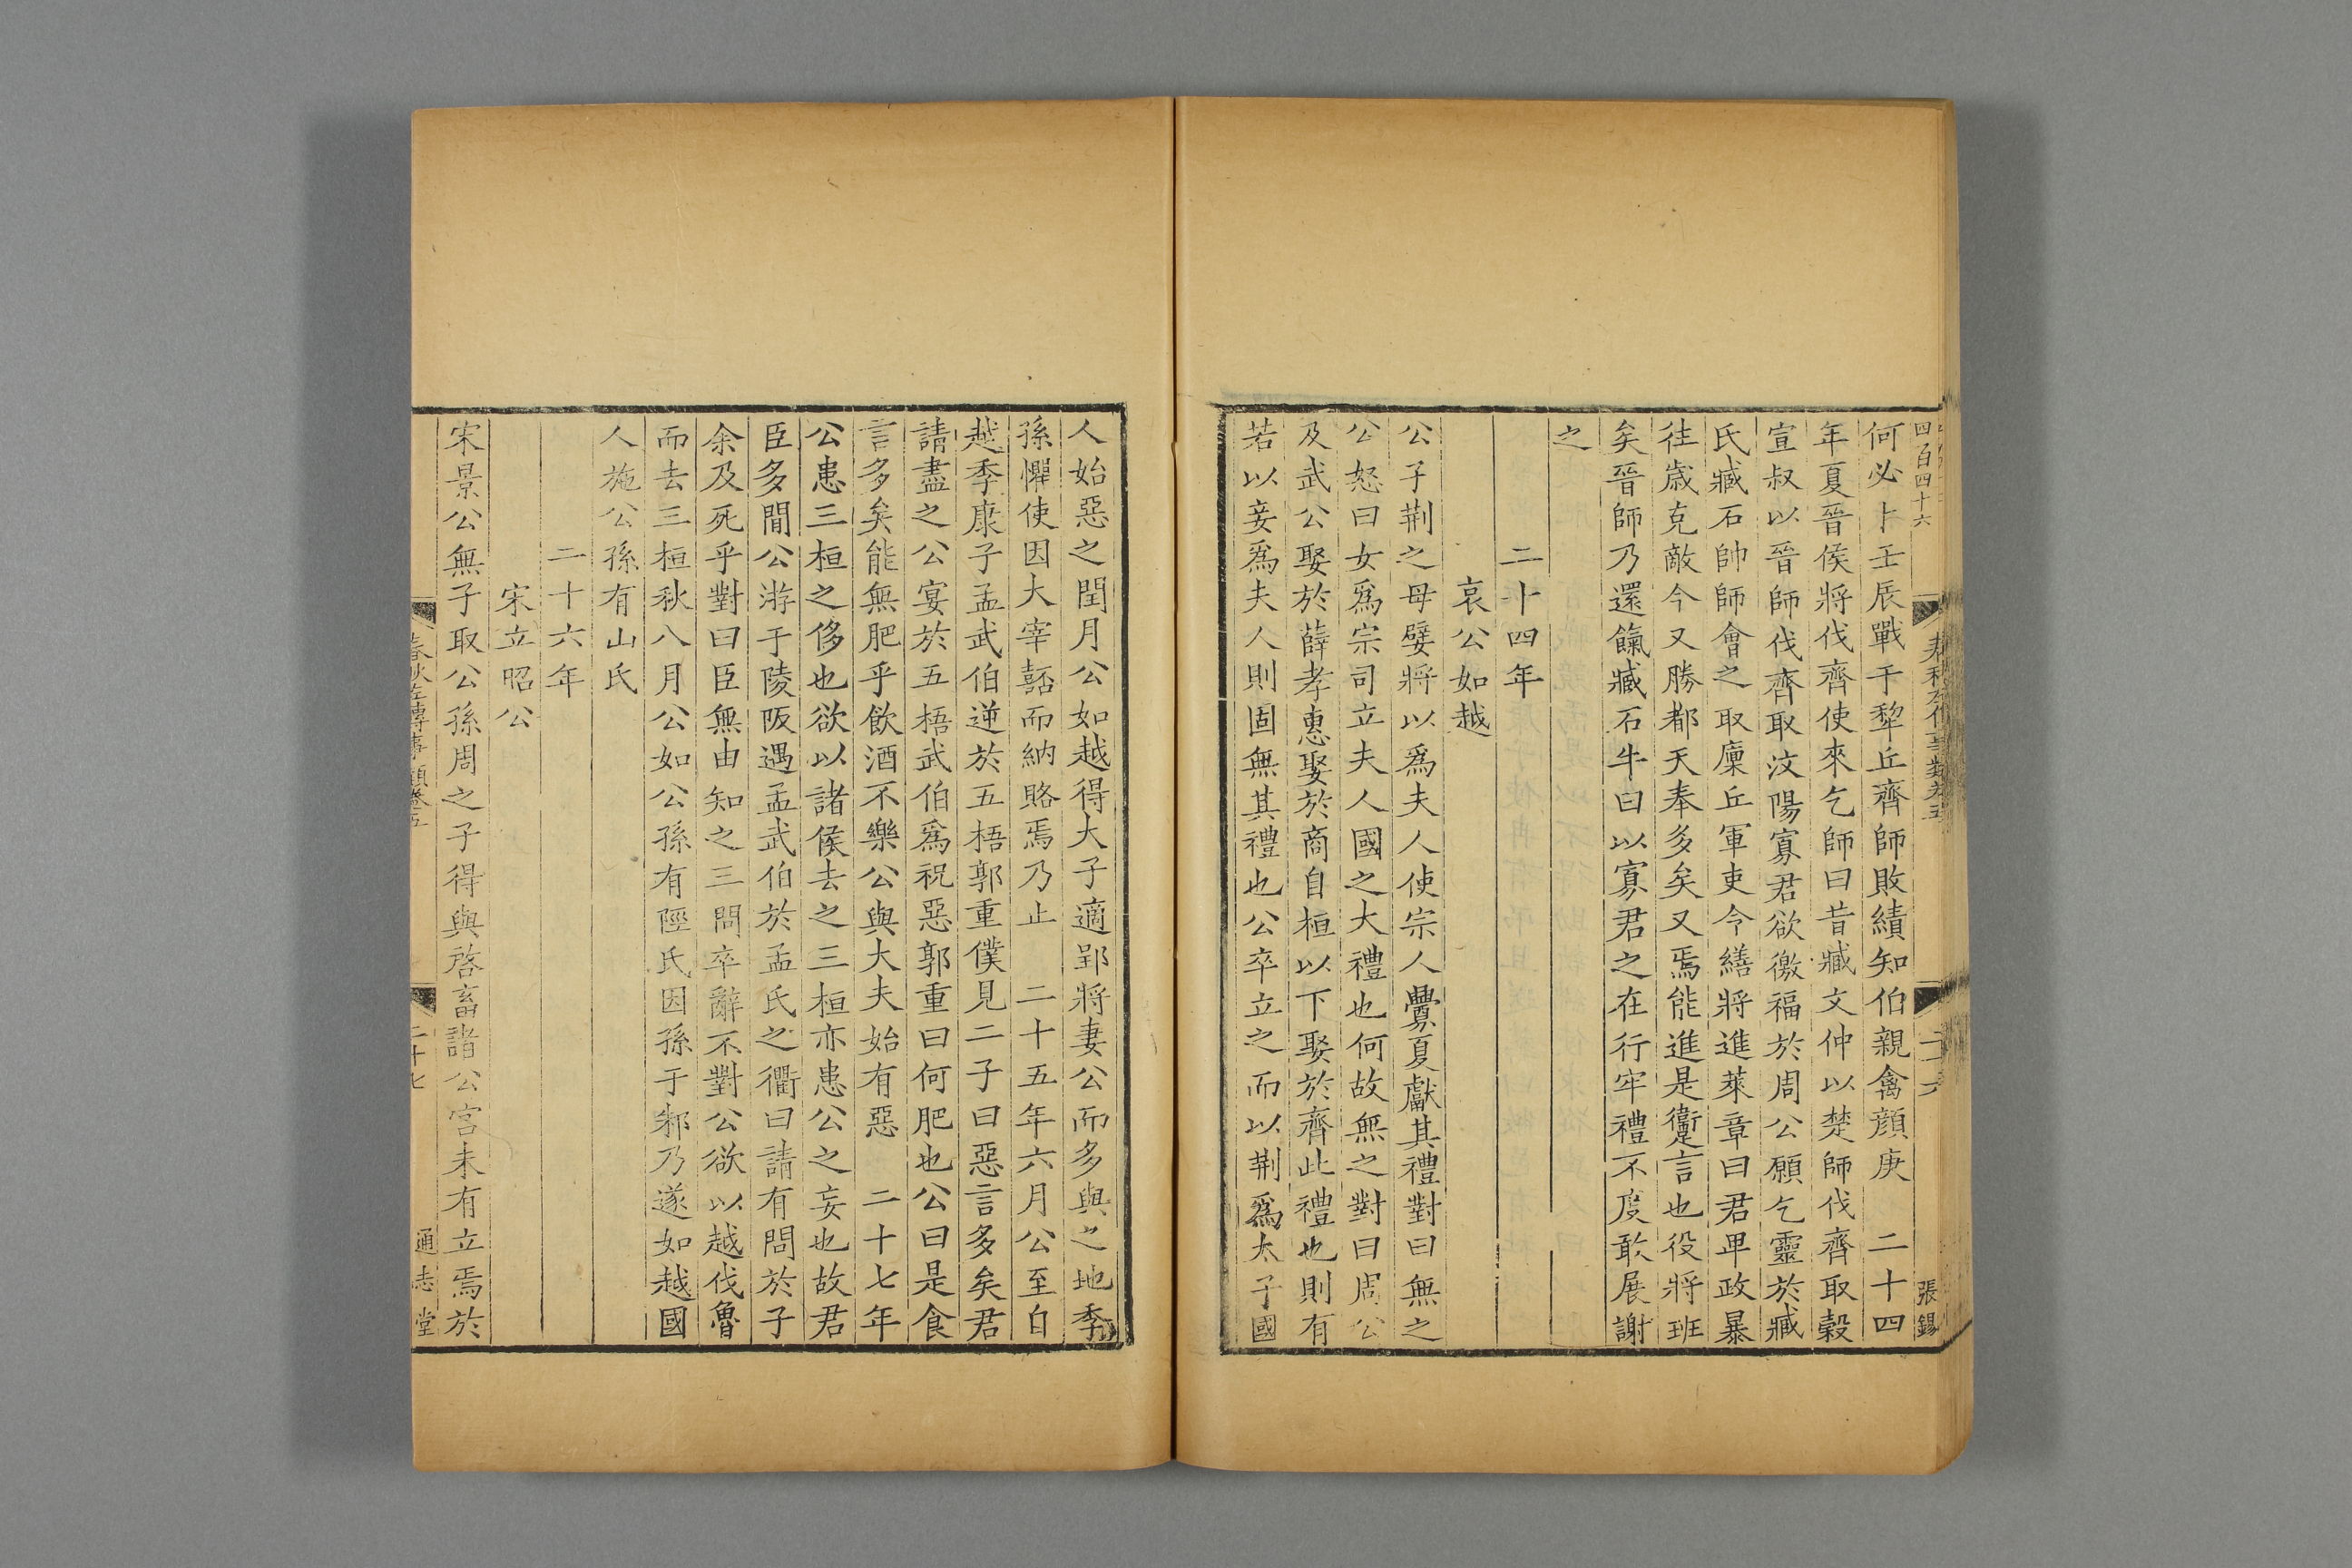 四百四十六
張錫
何必卜壬辰戰于犂丘齊師敗績知伯親禽顔庚　二十四
年夏晉侯將伐齊使來乞師曰昔臧文仲以楚師伐齊取穀
宣叔以晉師伐齊取汶陽寡君欲徼福於周公願乞靈於臧
氏臧石帥師會之取廩丘軍吏令繕將進萊章曰君卑政暴
往歳克敵今又勝都天奉多矣又焉能進是躗言也役將班
矣晉師乃還餼臧石牛曰以寡君之在行牢禮不度敢展謝
之
二十四年
哀公如越
公子荆之母嬖將以爲夫人使宗人釁夏獻其禮對曰無之
公怒曰女爲宗司立夫人國之大禮也何故無之對曰周公
及武公娶於薛孝惠娶於商自桓以下娶於齊此禮也則有
若以妾爲夫人則固無其禮也公卒立之而以荆爲太子國
人始惡之閏月公如越得大子適郢將妻公而多與之地季
孫懼使因大宰嚭而納賂焉乃止　二十五年六月公至自
越季康子孟武伯逆於五梧郭重僕見二子曰惡言多矣君
請盡之公宴於五梧武伯爲祝惡郭重曰何肥也公曰是食
言多矣能無肥乎飲酒不樂公與大夫始有惡　二十七年
公患三桓之侈也欲以諸侯去之三桓亦患公之妄也故君
臣多閒公游于陵阪遇孟武伯於孟氏之衢曰請有問於子
余及死乎對曰臣無由知之三問卒辭不對公欲以越伐魯
而去三桓秋八月公如公孫有陘氏因孫于邾乃遂如越國
人施公孫有山氏
二十六年
宋立昭公
宋景公無子取公孫周之子得與啓畜諸公宮未有立焉於
春秋左傳事類卷五
二十七
通志堂